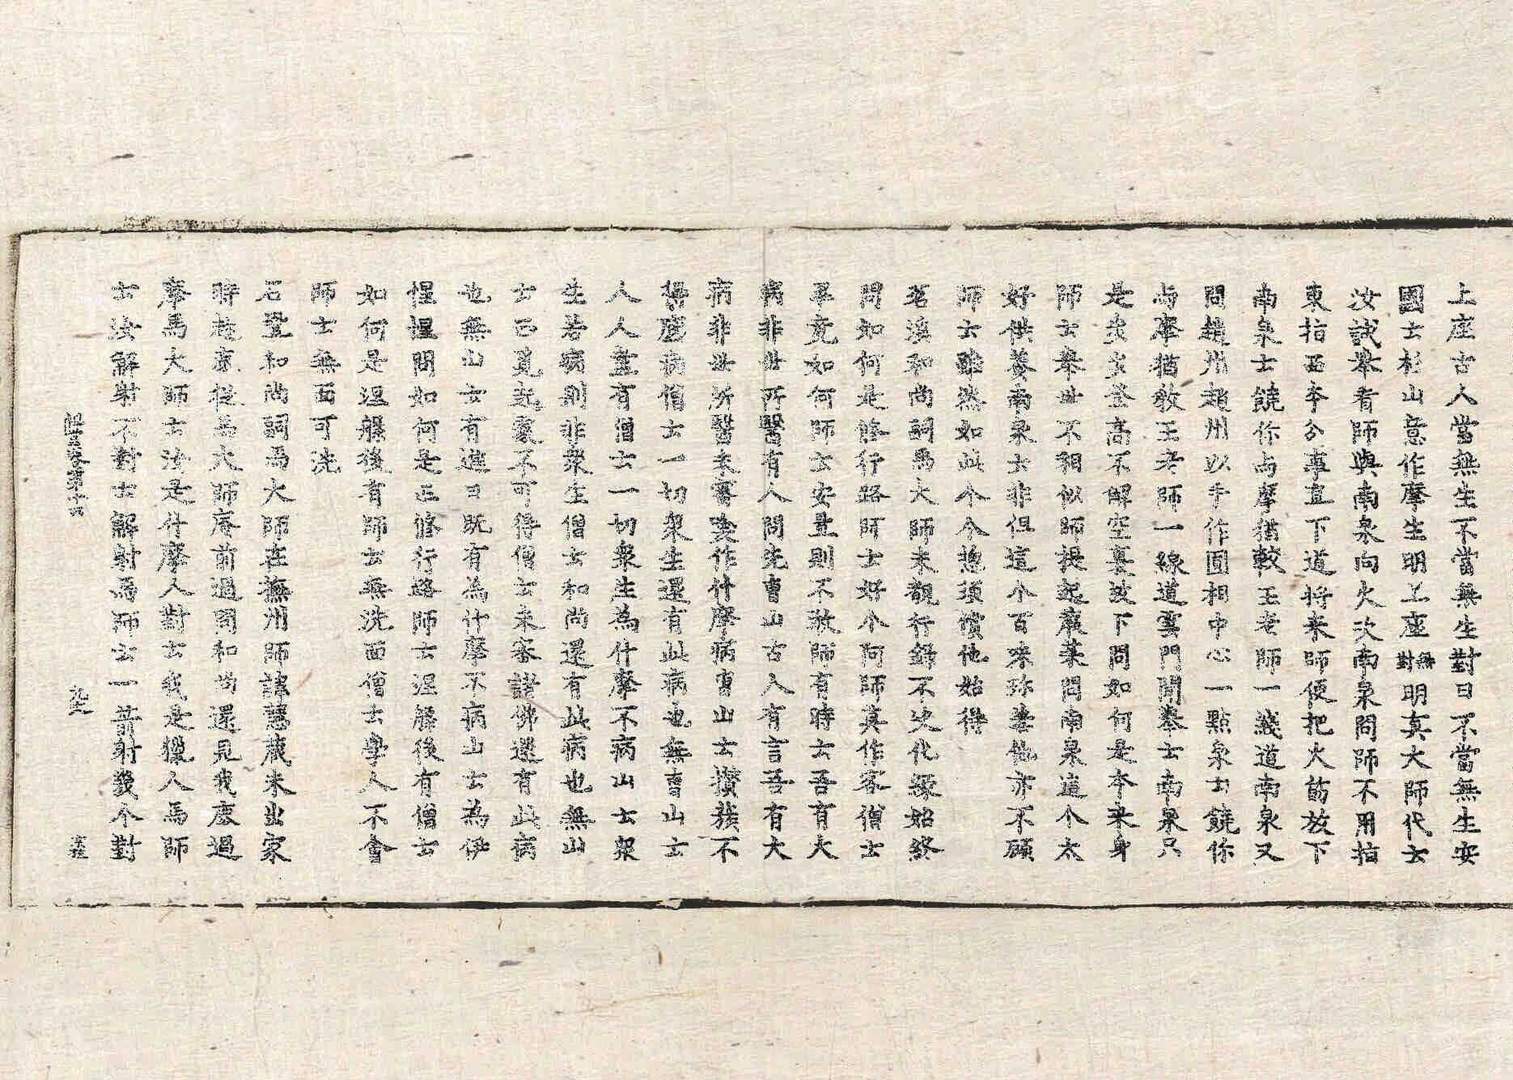 上座古人當無生不當無生對曰不當無生安
國云杉山意作摩生明上座無對明真大師代云
汝試舉看師與南泉向火次南泉問師不用指
東指西本分事直下道將來師便把火筯放下
南泉云饒你与摩猶較王老師一線道南泉又
問趙州趙州以手作圓相中心一點泉云饒你
与摩猶教王老師一線道雲門聞舉云南泉只
是步步登高不解空裏放下問如何是本來身
師云舉世不相似師提起蕨菜問南泉這个太
好供養南泉云非但這个百味珎羞他亦不顧
師云雖然如此个个惣須嘗他始得
茗溪和尚嗣馬大師未覩行錄不史化緣始終
問如何是修行路師云好个阿師莫作客僧云
畢竟如何師云安置則不敢師有時云吾有大
病非世所醫有人問先曹山古人有言吾有大
病非世所醫未審喚作什摩病曹山云攢蔟不
得底病僧云一切衆生還有此病也無曹山云
人人盡有僧云一切衆生為什摩不病山云衆
生若病則非衆生僧云和尚還有此病也無山
云正覓起處不可得僧云未審諸佛還有此病
也無山云有進曰既有為什摩不病山云為伊
惺惺問如何是正修行路師云涅槃後有僧云
如何是涅槃後有師云無洗面僧云學人不會
師云無面可洗
石鞏和尚嗣馬大師在撫州師諱慧藏未出家
時趁鹿從馬大師庵前過問和尚還見我鹿過
摩馬大師云汝是什摩人對云我是獵人馬師
云汝解射不對云解射馬師云一箭射幾个對
祖堂卷第十四